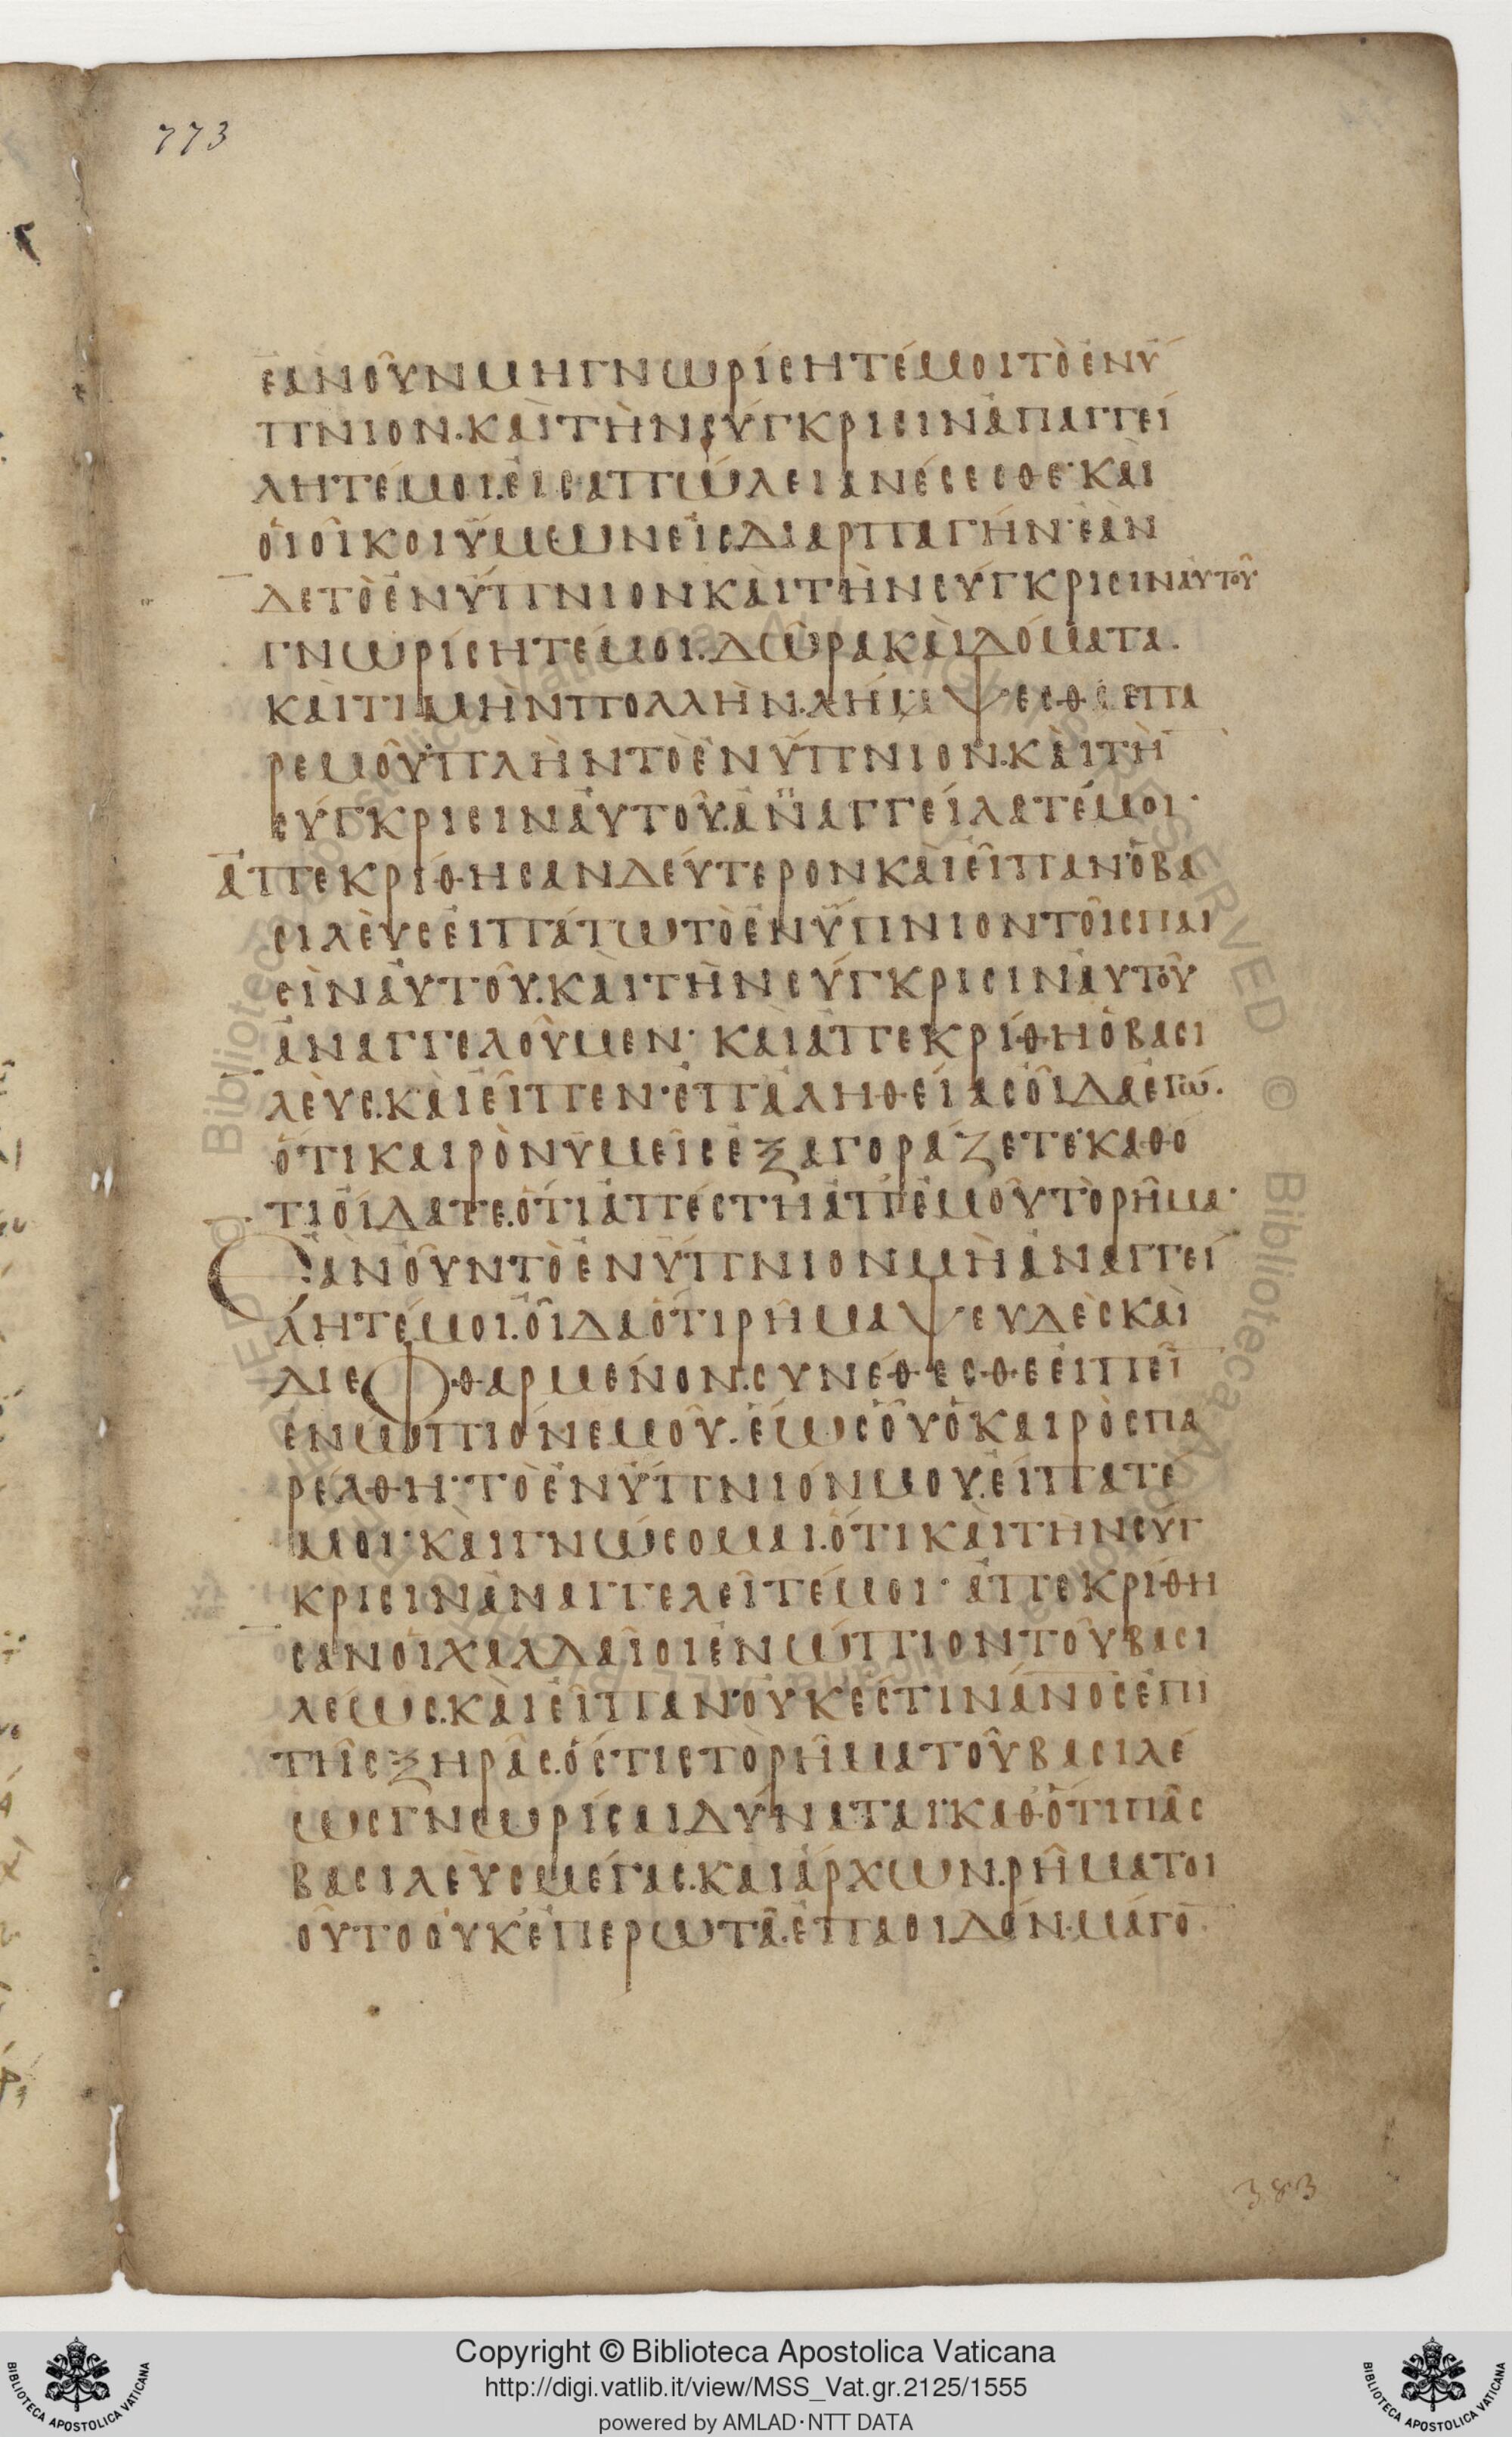 773
ἐὰν οὖν μὴ γνωρίσητέ μοι τὸ ἐνύ
πνιον. καὶ τὴν σύγκρισιν ἀπαγγεί
λητέ μοι. εἰς ἀπώλειαν ἔσεσθε· καὶ
ὁι οἶκοι ὑμῶν εἰς διαρπαγήν· ἐὰν
δὲ τὸ ἐνύπνιον καὶ τὴν σύγκρισιν αὐτοῦ
γνωρίσητέ μοι. δῶρα καὶ δόματα.
καὶ τιμὴν πολλὴν. λήμψεσθε πα
ρ ἐμοῦ· πλὴν τὸ ἐνύπνιον. καὶ τὴ̄
σύγκρισιν αὐτοῦ. ἀναγγείλατέ μοι·
ἀπεκρίθησαν δεύτερον καὶ εἶπαν· ὁ βα
σιλεὺς εἰπάτω τὸ ἐνύπνιον τοῖς παι
σὶν αὐτοῦ. καὶ τὴν σύγκρισιν αὐτοῦ
ἀναγγελοῦμεν· καὶ ἀπεκρίθη ὁ βασι
λεὺς. καὶ εἶπεν· ἐπ ἀληθείας οἶδα ἐγώ.
ὅτι καιρὸν ὑμεῖς ἐξαγοράζετε· καθό
τι οἴδατε. ὅτι ἀπέστη ἀπ ἐμοῦ τὸ ῥῆμα·
Ἐὰν οὖν τὸ ἐνύπνιον μὴ ἀναγγεί
λητέ μοι. οἶδα ὅτι ῥῆμα ψευδὲς καὶ
διεφθαρμένον. συνέθεσθε εἰπεῖ̄
ἐνώπιόν ἐμοῦ. ἕως οὗ ὁ καιρὸς πα
ρέλθη· τὸ ἐνύπνιόν μου. εἴπατέ
μοι· καὶ γνώσομαι. ὅτι καὶ τὴν σύγ
κρισιν ἀναγγελεῖτέ μοι· ἀπεκρίθη
σαν οἱ χαλδαῖοι ἐνώπιον τοῦ βασι
λέως. καὶ εἶπαν· οὐκ ἔστιν ἄν̅ο̅ς̅ ἐπὶ
τῆς ξηρᾶς. ὅστις τὸ ῥῆμα τοῦ βασιλέ
ως γνωρίσαι δύναται· καθ ὅτι πᾶς
βασιλεὺς μέγας. καὶ ἄρχων. ῥῆμα τοι
οῦτο οὐκ ἐπερωτᾶ. ἐπαοιδὸν· μάγο̄
383
Copyright © Biblioteca Apostolica Vaticana
http://digi.vatlib.it/view/MSS_Vat.gr.2125/1555
powered by AMLAD·NTT DATA
BIBLIOTECA APOSTOLICA VATICANA
BIBLIOTECA APOSTOLICA VATICANA